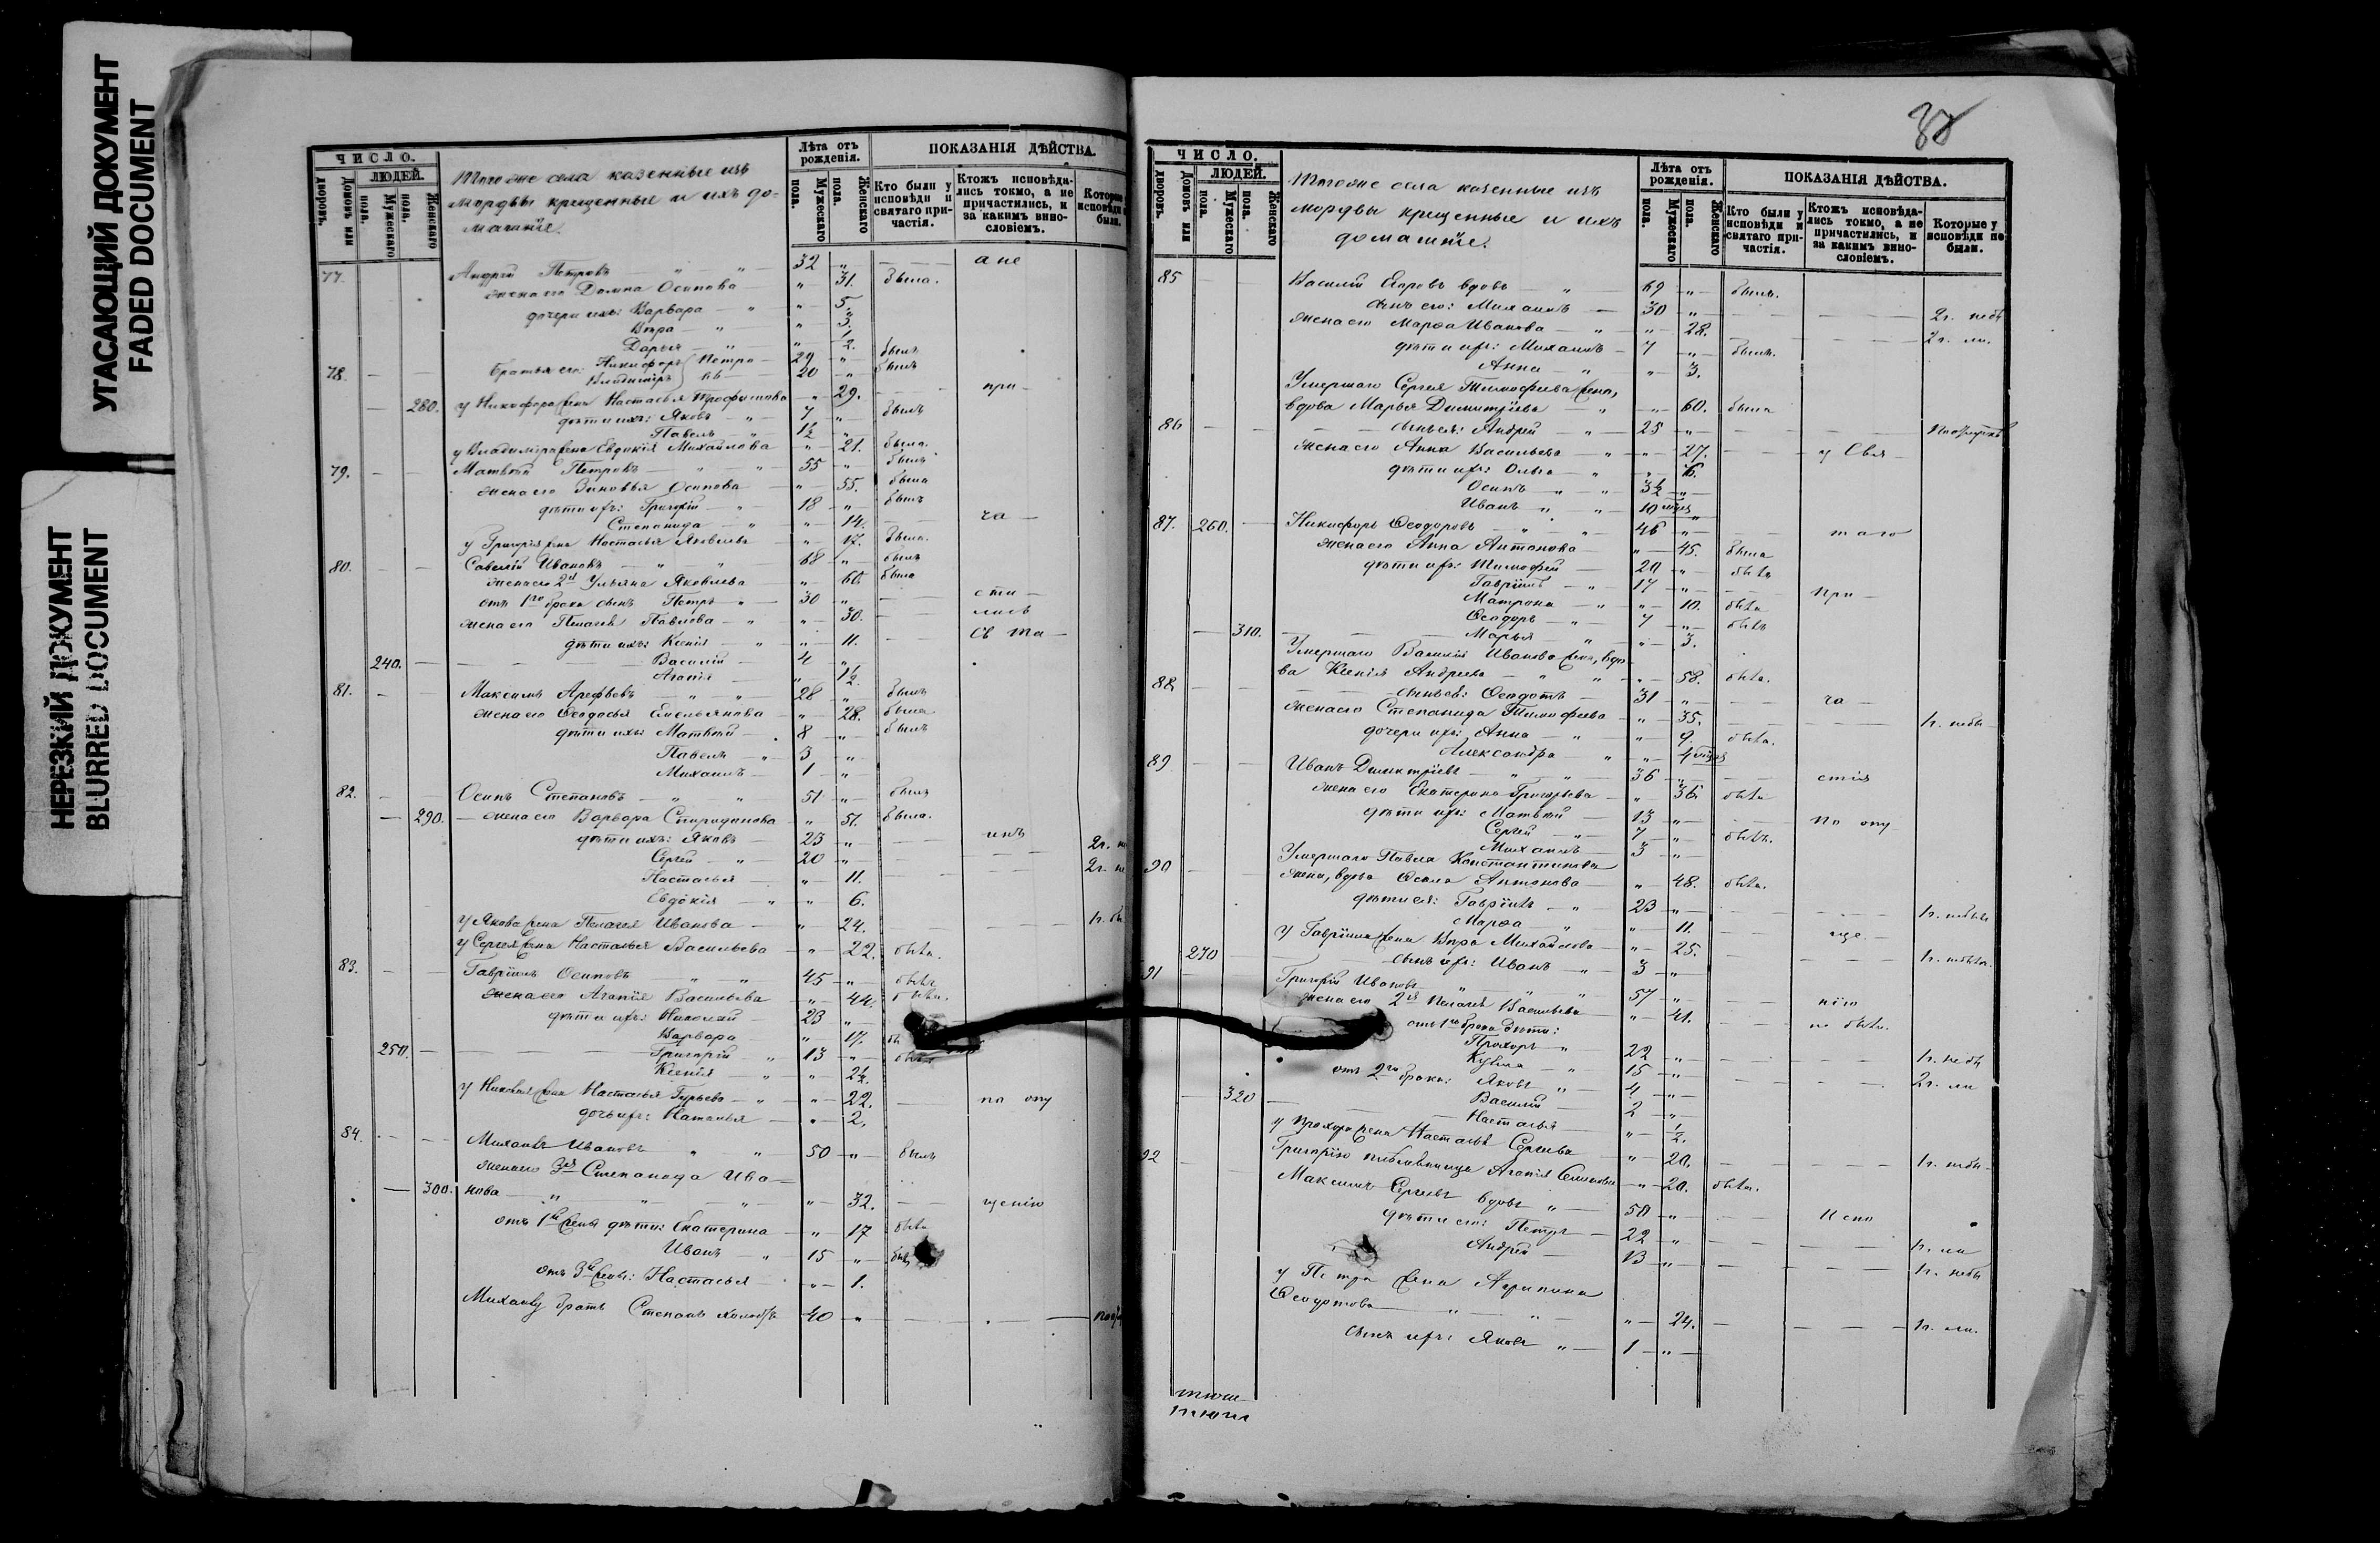 УГАСАЮЩИЙ ДОКУМЕНТ
FADED DOCUMENT
НЕРЕЗКИЙ ДОКУМЕНТ
BLURRED DOCUMENT
ЧИСЛО.
ЛЮДЕЙ.
Домовъ или дворовъ.
Мужескаго пола.
Женскаго пола.
Тогоже села казенные изъ
мордвы крещенные и ихъ до-
машніе.
Лѣта отъ рожденія.
Мужескаго пола.
Женскаго пола.
ПОКАЗАНІЯ ДѢЙСТВА.
Кто были у исповѣди и святаго при-частія.
Ктожъ исповѣда-лись токмо, а не причастились, и за какимъ вино-словіемъ.
Которые исповѣди были.
77. Андрей Петровъ — " — " — 32 " — — — а не
жена его Домна Осипова " 31. была.
дочери ихъ: Варвара — " — " 5.
Вѣра — " — " 3.
Дарья — " — " 2.
78. Братья его: Никифоръ Петро- 29 " былъ
Владиміръ вы 20 " былъ
280. у Никифора жена Настасья Трофимова " 29. при-
дѣти ихъ: Яковъ — " 7 " былъ
Павелъ — " 1½ "
у Владиміра жена Евдокія Михайлова " 21. была.
79. Матвѣй Петровъ — " — " 55 " былъ
жена его Зиновья Осипова " 55. была
дѣти ихъ: Григорій — " 18 " былъ
Степанида — " " 14. — ча —
у Григорія жена Настасья Яковлева " 17. была.
80. Савелій Ивановъ — " — " 68 " былъ
жена его 2я Ульяна Яковлева " 60. была
отъ 1го брака сынъ Петръ — " 30 " — сти —
жена его Пелагея Павлова — " " 30. — лись
дѣти ихъ: Ксенія — " " 11. — Св та —
240. Василій — 4 "
Агапія — " 1½.
81. Максимъ Арефьевъ — " — " 28 " былъ
жена его Ѳеодосья Емельянова — " 28. была
дѣти ихъ: Матвѣй — 8 " былъ
Павелъ " 3 "
Михаилъ — 1 "
82. Осипъ Степановъ — " " 51 " былъ
290. жена его Варвара Спиридонова " 51. была.
дѣти ихъ: Яковъ — 23 " — инъ 2г.
Сергей — " 20 " — 2г. не
Настасья — " 11.
Евдокія — " " 6.
у Якова жена Пелагея Иванова — " 24.
у Сергея жена Настасья Васильева — " 22. была.
83. Гавріилъ Осиповъ " " 45 " былъ
жена его Агапія Васильева — " 44. была.
дѣти ихъ: Николай — 23 "
Варвара — " 17.
250. Григорій — " 13 " былъ
Ксенія — " " 2½.
у Николая жена Настасья Гурьева — " — " 22. — по опу
дочь ихъ: Наталья — " 2.
84. Михаилъ Ивановъ " " 50 " былъ
жена его 3я Степанида Ива —
300. нова — " " " " 32. — щенію
отъ 1й жены дѣти: Екатерина — " 17 была
Иванъ — " 15 "
отъ 3й жены: Настасья — " 1.
Михаилу братъ Степанъ 40 "
38
ЧИСЛО.
ЛЮДЕЙ.
Домовъ или дворовъ.
Мужескаго пола.
Женскаго пола.
Тогоже села казенные изъ
мордвы крещенные и ихъ
домашніе.
Лѣта отъ рожденія.
Мужескаго пола.
Женскаго пола.
ПОКАЗАНІЯ ДѢЙСТВА.
Кто были у исповѣди и святаго при-частія.
Ктожъ исповѣда-лись токмо, а не причастились, и за какимъ вино-словіемъ.
Которые у исповѣди не были.
85 Василій вдовъ — " 69 " былъ.
сынъ его: Михаилъ — 30 " — — 2г. не бы
жена его Марѳа Иванова — " " 28. — — 2г. ли.
дѣти ихъ: Михаилъ — 7 " былъ.
Анна — " " 3.
Умершаго Сергея Тимофеева жена,
вдова Марья Димитріева — " " 60. была
86 сынъ ея: Андрей — " 25 " —
жена его Анна Васильева — " " 27. — у Свя —
дѣти ихъ: Ольга — " " 6.
Осипъ — " " 3½ "
Иванъ " " 10 "
87. 260. Никифоръ Ѳеодоровъ — " " 46 " — таго
жена его Анна Антонова — " 45. была
дѣти ихъ: Тимофей — 20 " былъ
Гавріилъ — " 17 " — при —
Матрона — " " 10. была
Ѳеодоръ — " 7 " былъ
310. Марья — " " 3.
Умершаго Василія Иванова жена, вдо-
ва Ксенія Андреева " " " 58. была.
88 сынъ ея: Ѳеодотъ — " 31 " — ча —
жена его Степанида Тимофеева — " 35. — 1г. не бы
дочери ихъ: Анна — " " 9. была.
Александра " " 4
89 Иванъ Димитріевъ " " 36 " — стія
жена его Екатерина Григорьева — " 36. была
дѣти ихъ: Матвѣй — 13 " — по опу
Сергей — " 7 " былъ.
Михаилъ — 3 "
Умершаго Павла Константинова
90 жена, вдова Ѳекла Антонова — " 48. была.
дѣти ея: Гавріилъ — " 23 " — 1г. не былъ
Марѳа " " 11. — ще —
у Гавріила жена Вѣра Михайлова — " 25. — 1г. не была.
270 сынъ ихъ: Иванъ — " 3 "
91 Григорій Ивановъ " " 57 " — нію
жена его 2я Пелагея Васильева " 41. — не была.
отъ 1го брака дѣти:
Прохоръ — " 22 " — 1г. не бы
Кузьма — " 15 " — 2г. ли
отъ 2го брака: Яковъ — " 4 "
320 Василій — 2 "
Настасья " ½.
у Прохора жена Настасья Сергеева — " 20. — 1г. не бы-
92 Григорію Агапія " 20. была.
Максимъ Сергеевъ вдовъ " 50 " — Испо
дѣти его: Петръ — 22 " — 1г. ли
Андрей — 13 " — 1г. не бы
у Петра жена Агрипина
Ѳеодотова — " " " 24. — 1г. ли.
сынъ ихъ: Яковъ " 1 "